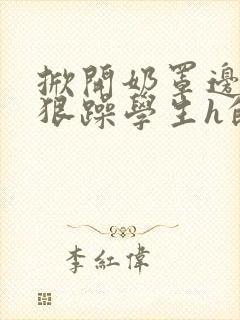 掀開奶罩邊
狠躁學生h
李紅偉